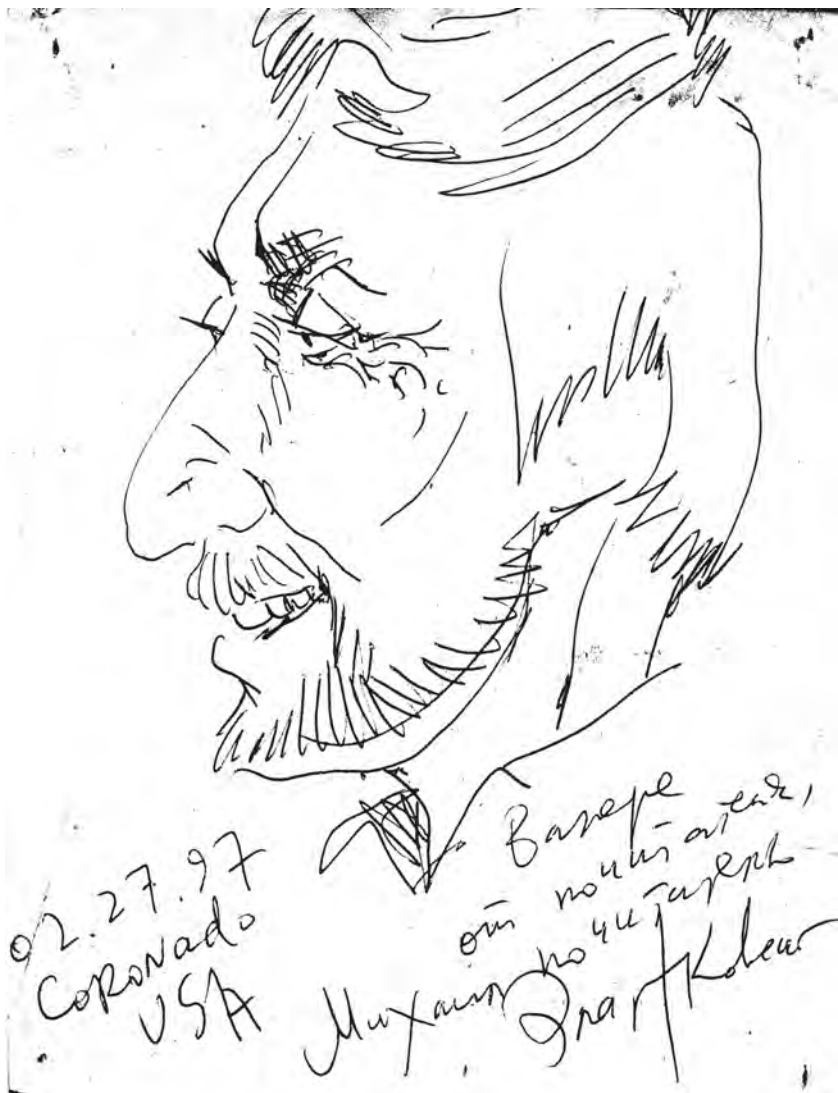 02.27.97
CORONADO
USA
Валере
от почитателя,
почитатель
Михаил